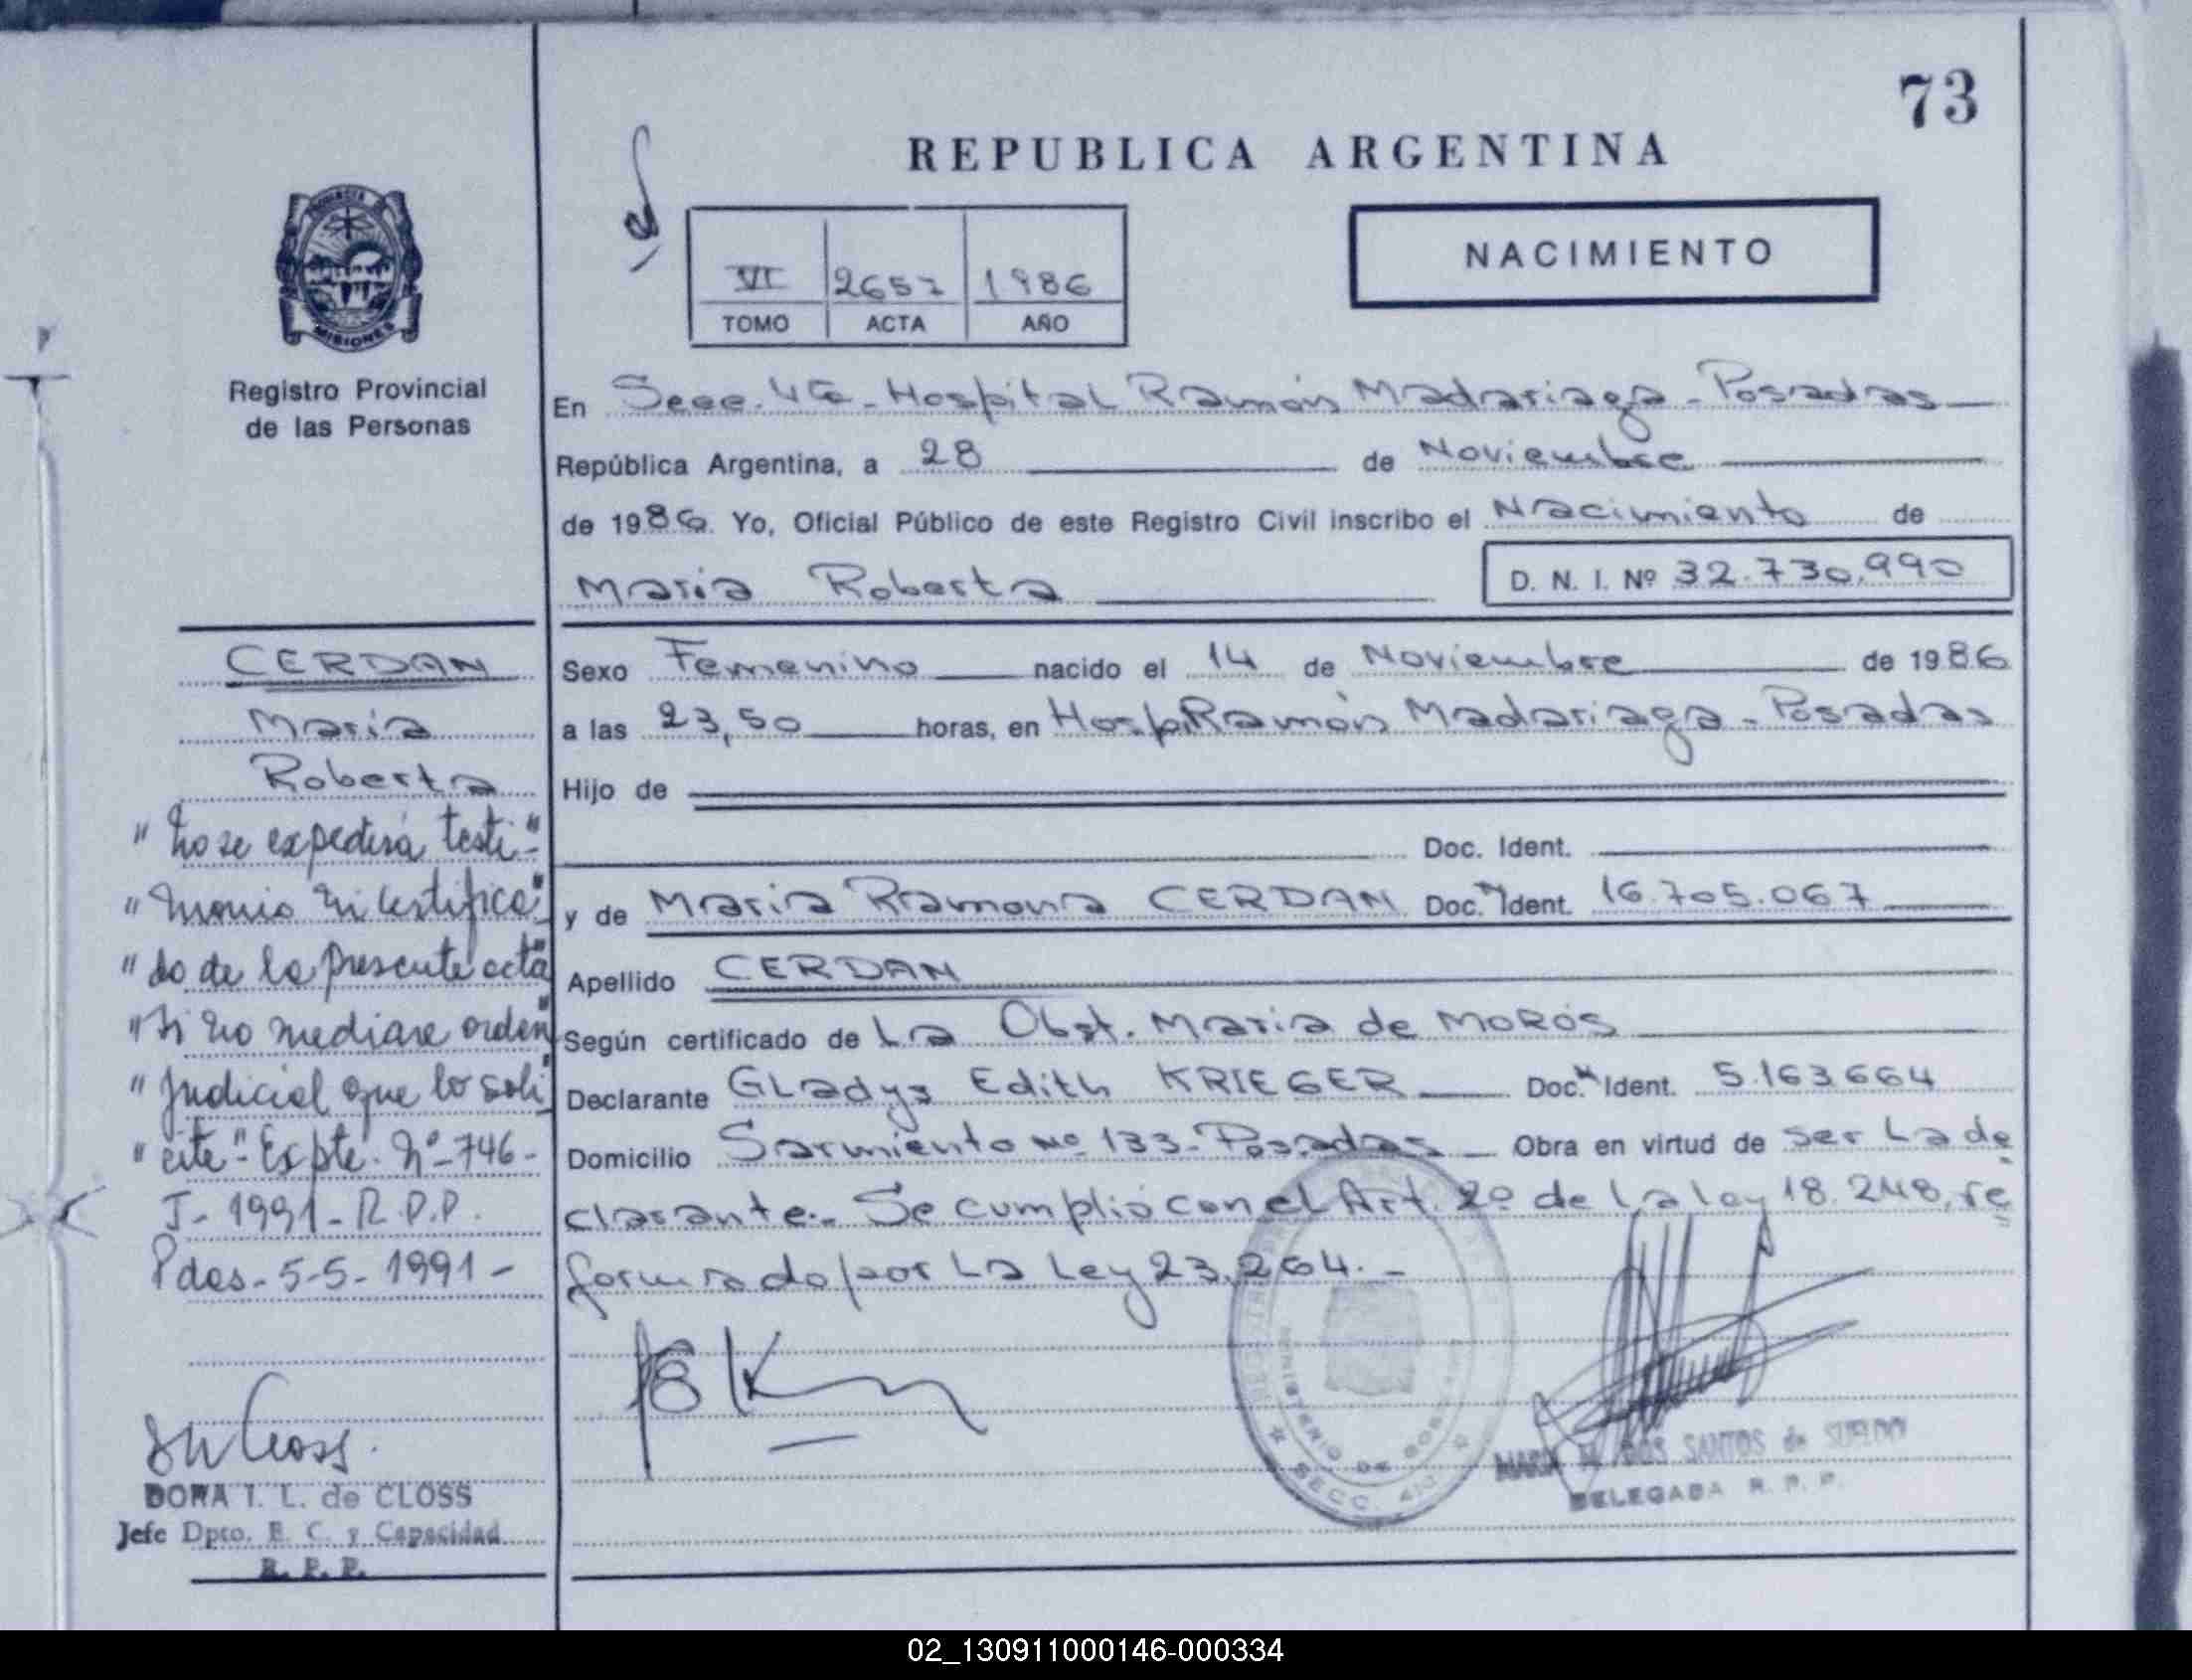 73
REPUBLICA ARGENTINA
VI 2657 1986
TOMO ACTA AÑO
NACIMIENTO
MISIONES
Registro Provincial
de las Personas
En Secc. 4ta - Hospital Ramón Madariaga - Posadas
República Argentina, a 28 de Noviembre
de 1986. Yo, Oficial Público de este Registro Civil inscribo el Nacimiento de
Maria Roberta D. N. I. Nº 32.730.990
Sexo Femenino nacido el 14 de Noviembre de 1986
a las 23,50 horas, en Hosp. Ramón Madariaga - Posadas
Hijo de
Doc. Ident.
y de Maria Ramona CERDAN Doc. Ident. 16.705.067
Apellido CERDAN
Según certificado de La Obst. Maria de MOROS
Declarante GLadys Edith KRIEGER Doc. Ident. 5.163.664
Domicilio Sarmiento Nº 133 - Posadas - Obra en virtud de ser La de
clarante.- Se cumplió con el Art. 2º de La Ley 18.248, re
formado por La Ley 23.264. -
CERDAN
Maria
Roberta
" No se expedirá testi-"
" monio ni certifica"
" do de la presente acta"
" si no mediare orden"
" Judicial que lo soli"
" cite" - Expte. Nº 746 -
J - 1991 - R.P.P.
Pdas - 5-5-1991 -
DORA I. L. de CLOSS
Jefe Dpto. E. C. y Capacidad
R. P. P.
MINISTERIO DE GOB.
SECC. 4ta
MARIA DOS SANTOS de SUELDO
DELEGADA R. P. P.
02_130911000146-000334